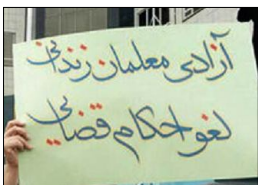 آزادی معلمان زندانی
لغو احکام قضایی